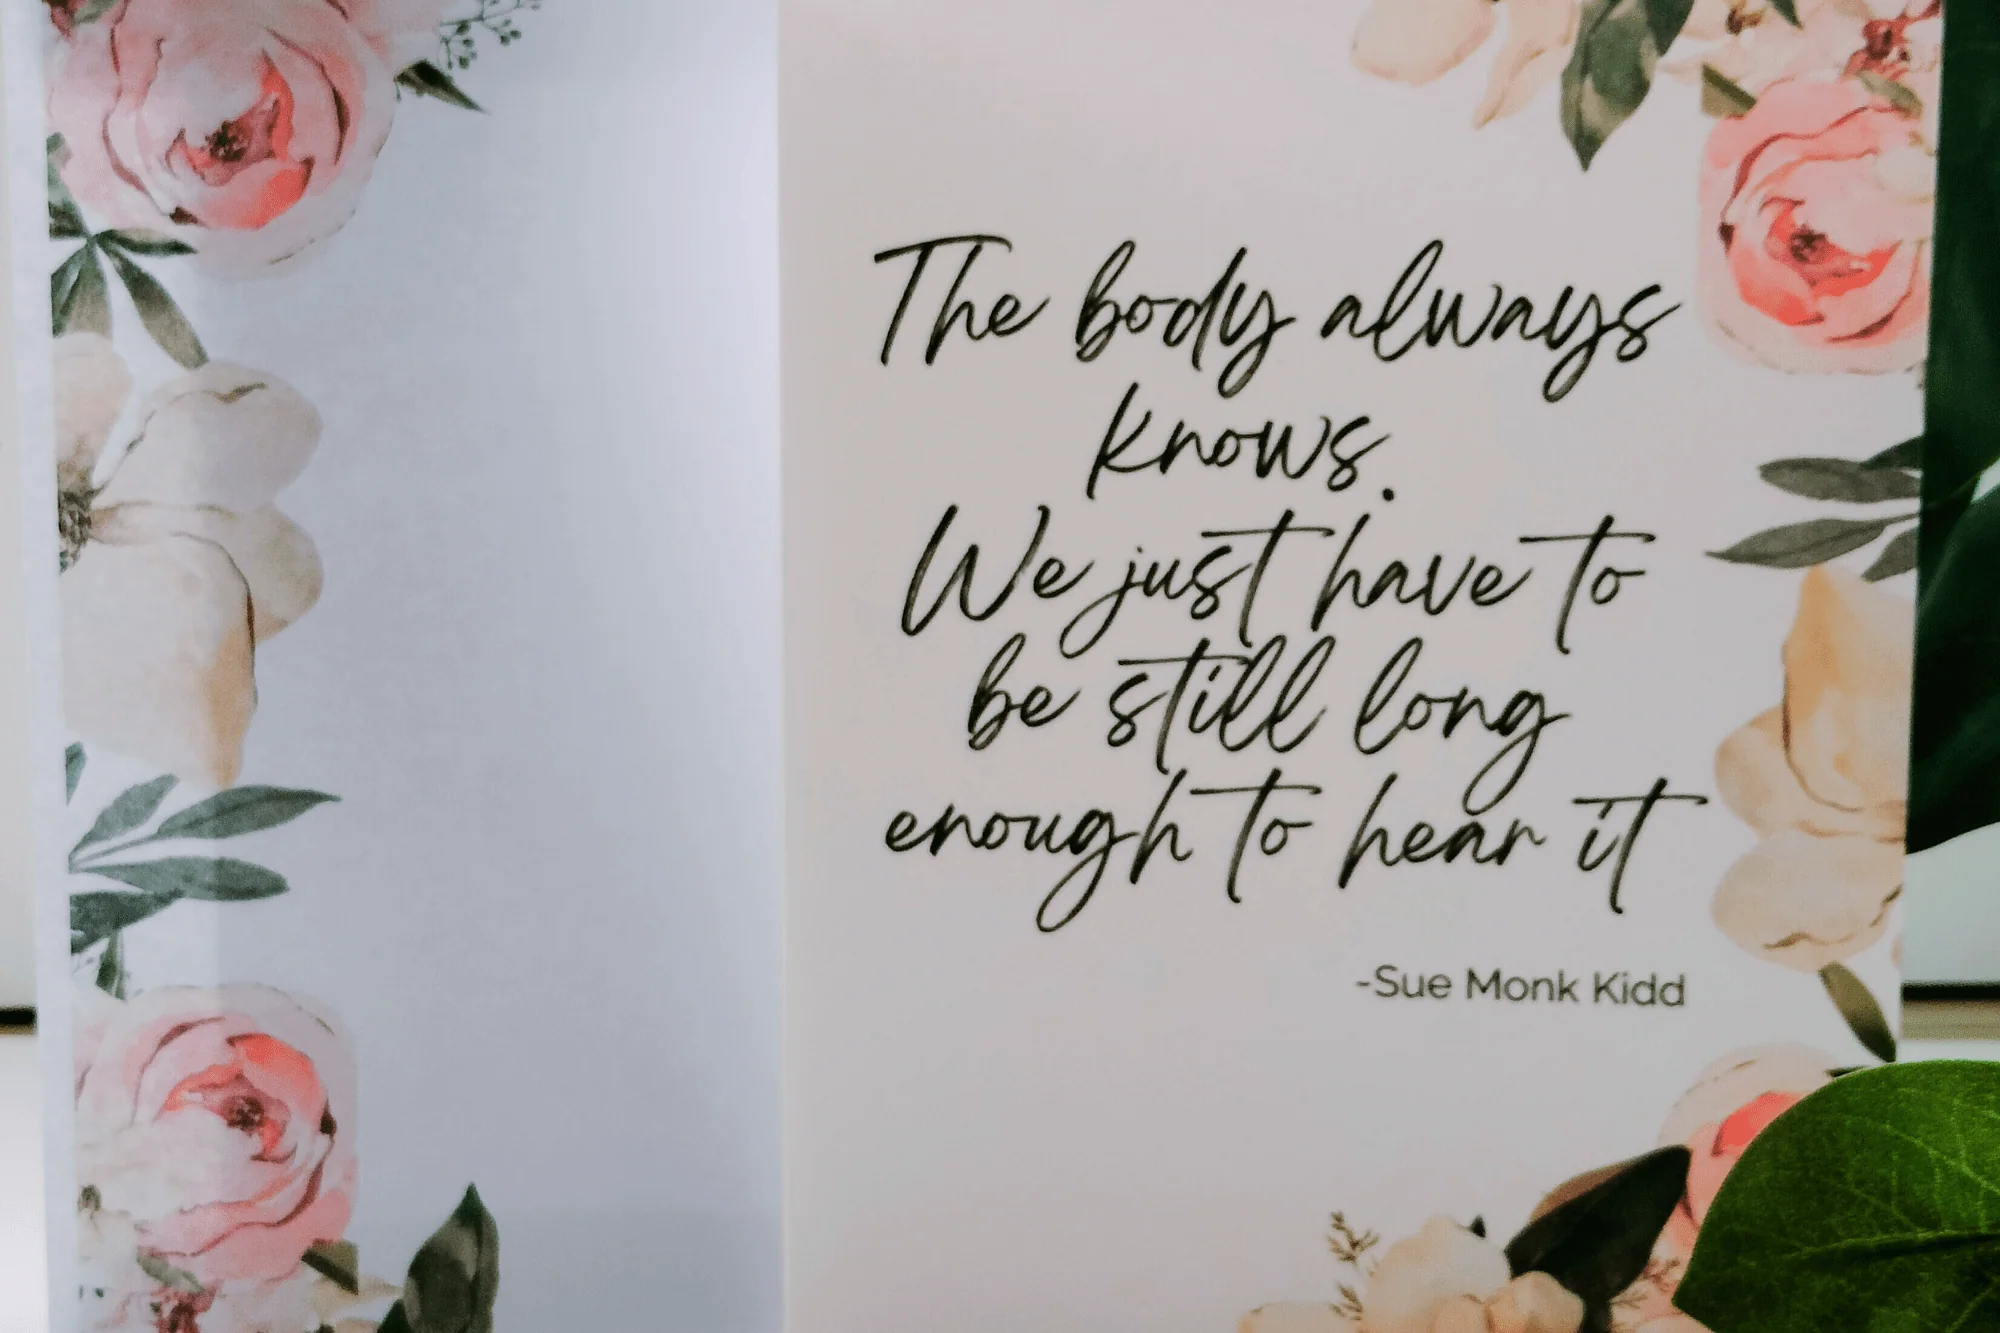 The body always
knows.
We just have to
be still long
enough to hear it
-Sue Monk Kidd